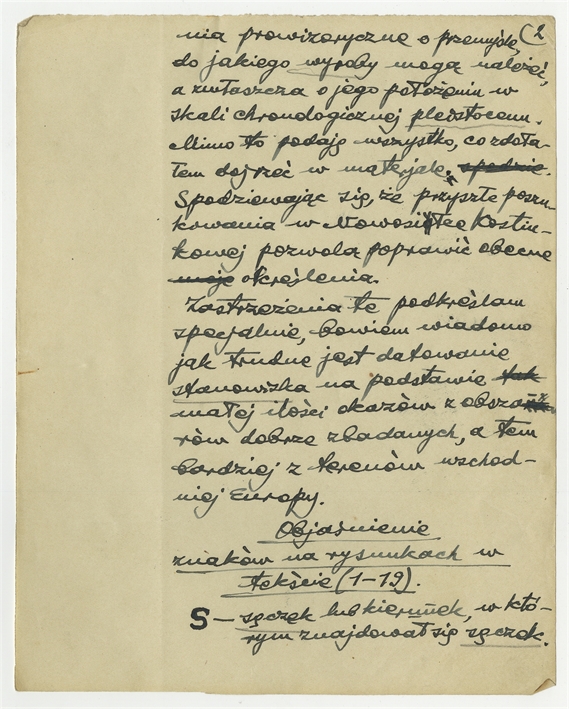 (2
nia prowizoryczne o przemyśle,
do jakiego wyroby mogą należeć,
a zwłaszcza o jego położeniu w
skali chronologicznej pleistocenu.
Mimo to podaję wszystko, co zdoła-
łem dojrzeć w materjale. spodzie.
Spodziewając się, że przyszłe poszu-
kowania w Nowosiółce Kostiu-
kowej pozwolą poprawić obecne
moje określenia.
Zastrzeżenia te podkreślam
specjalnie, bowiem wiadomo
jak trudne jest datowanie
stanowiska na podstawie tak
małej ilości okazów z obsza-
rów dobrze zbadanych, a tem
bardziej z terenów wschod-
niej Europy.
Objaśnienie
znaków na rysunkach w
tekście (1-19).
S – sęczek lub kierunek, w któ-
rym znajdował się sęczek.